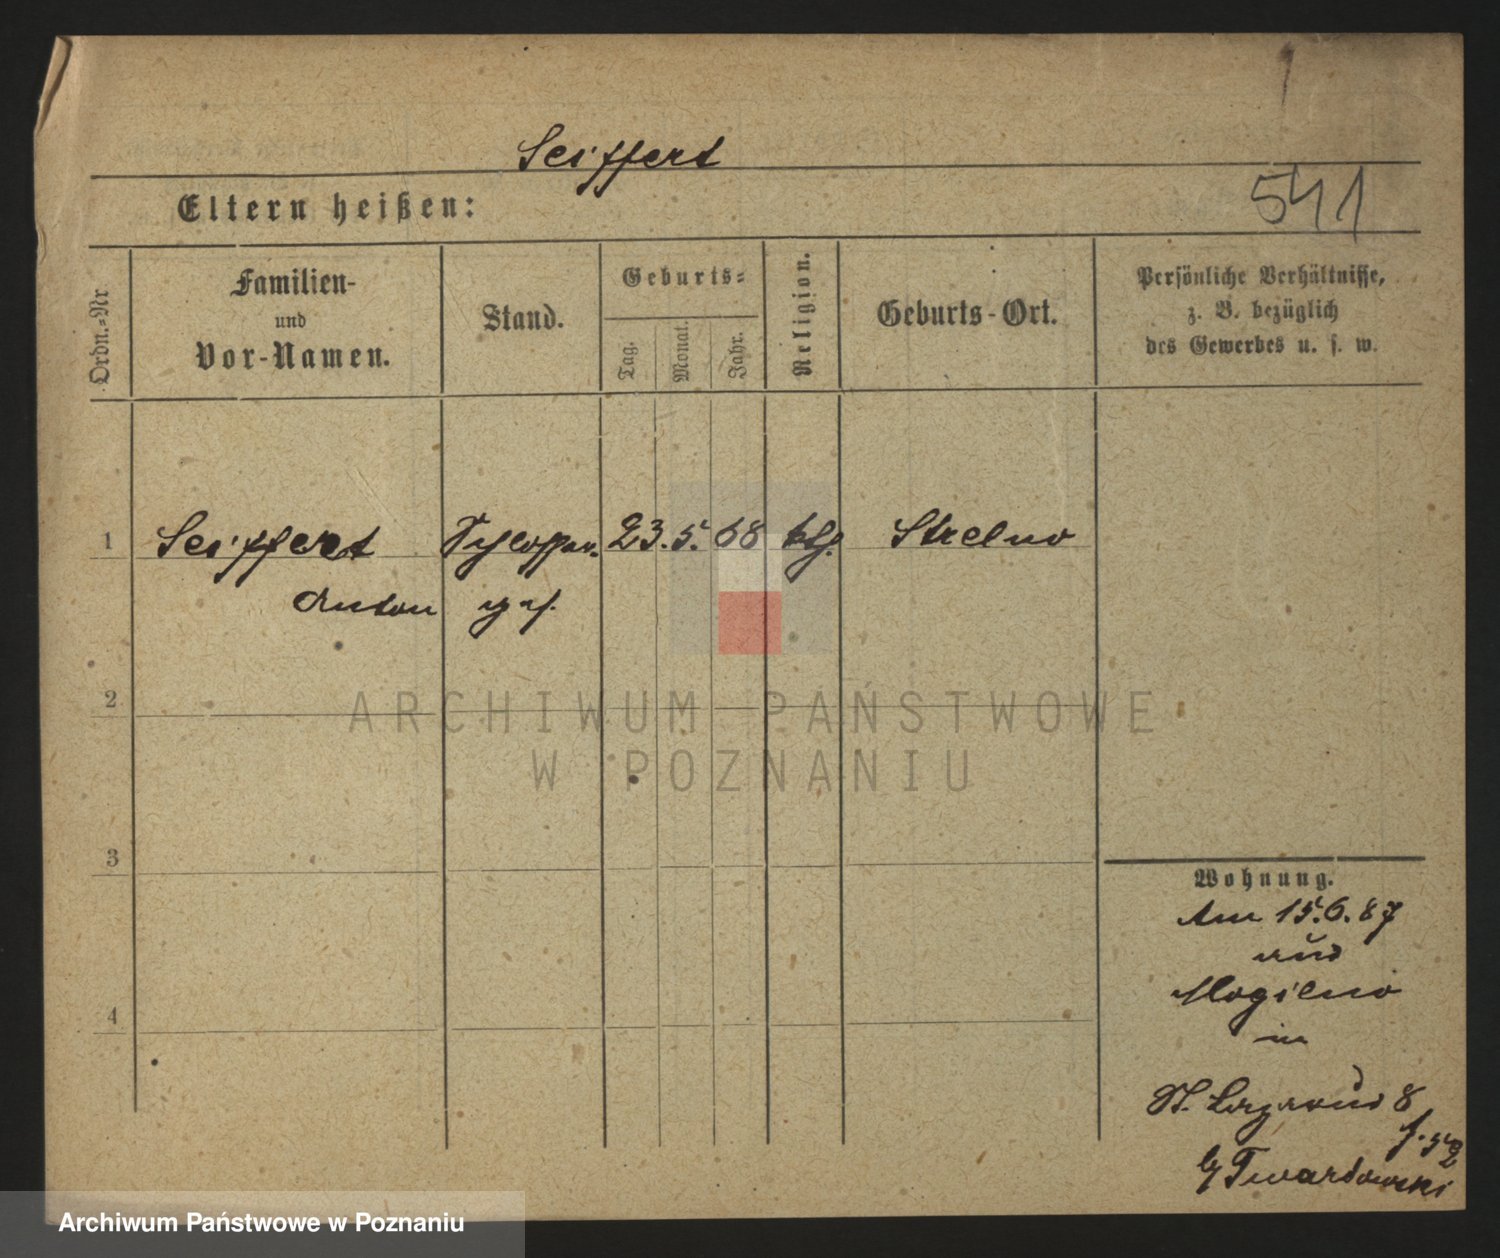 Seiffert
Eltern heißen:
541
Ordn.=Nr
Familien-
und
Vor-Namen.
Stand.
Geburts=
Tag.
Monat.
Jahr.
Religion.
Geburts-Ort.
Persönliche Verhältnisse,
z. B. bezüglich
des Gewerbes u. s. w.
1 Seiffert 23. 5. 68 kth. Strelno
Anton
2
3
4
ARCHIWUM PAŃSTWOWE
W POZNANIU
Wohnung.
Am 15.6.87
aus
Mogilno
in
St. Lazarus 8
b/ Twardowski
Archiwum Państwowe w Poznaniu